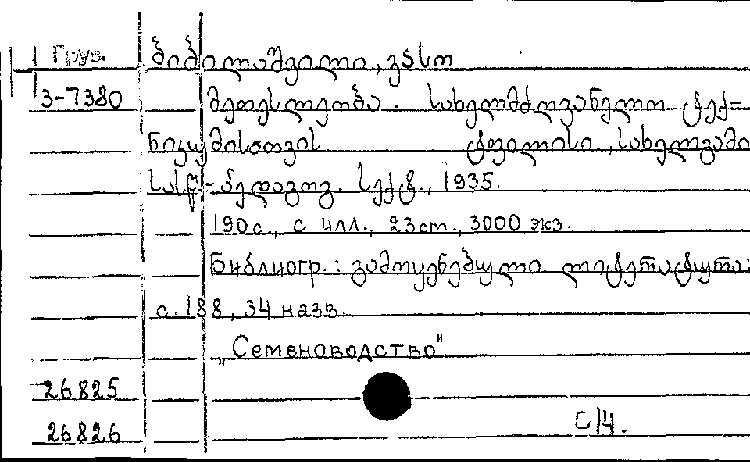 Груз.
ბიბილაშვილი, ვასო
3-7380
მეთესლეობა. სახელმძღვანელო ტექ=
ნიკუმისთვის ტფილისი, სახელგამი
სასწ.-პედაგოგ. სექტ., 1935.
190с., с илл., 23cm., 3000 экз.
Библиогр.: გამოყენებული ლიტერატურა:
с. 188, 34 назв.
„Семеноводство"
26825
26826
С/Ч.